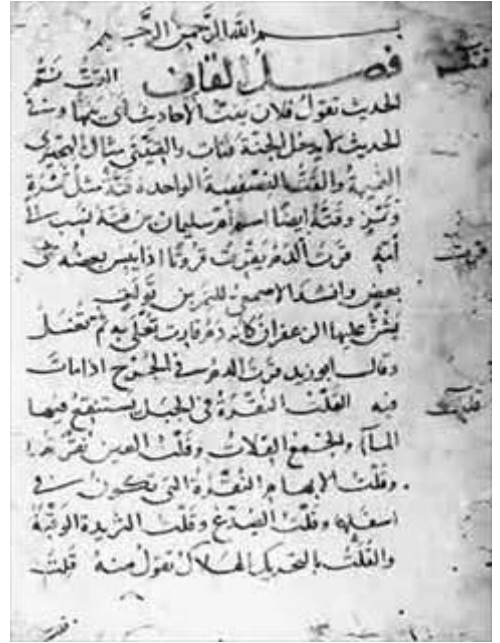 بسم الله الرحمن الرحيم
فصل القاف القت نم
قتت
الحديث تقول فلان يقت الاحاديث أي ينمها وفي
الحديث لا يدخل الجنة قتات والقتيتى مثال الهجيرى
النميمة والقت الفصفصة الواحدة قتة مثل تمرة
وتمر وقتة ايضا اسم ام سليمان بن قتة نسب الى
امه قرت الدم يقرت قروتا اذا يبس بعضه على
قرت
بعض وانشد الاصمعي للنمر بن تولب
يشن عليها الزعفران كأنه دم قارت تعلى به ثم تغسل
وقال ابو زيد قرت الدم في الجرح اذا مات
فيه القلت النقرة في الجبل يستنقع فيها
قلت
الماء والجمع القلات وقلت العين نقرتها
وقلت الابهام النقرة التي تكون في
اسفلها وقلت الصدغ وقلت الثريدة الوقبة
والقلت بالتحريك الهلاك تقول منه قلت